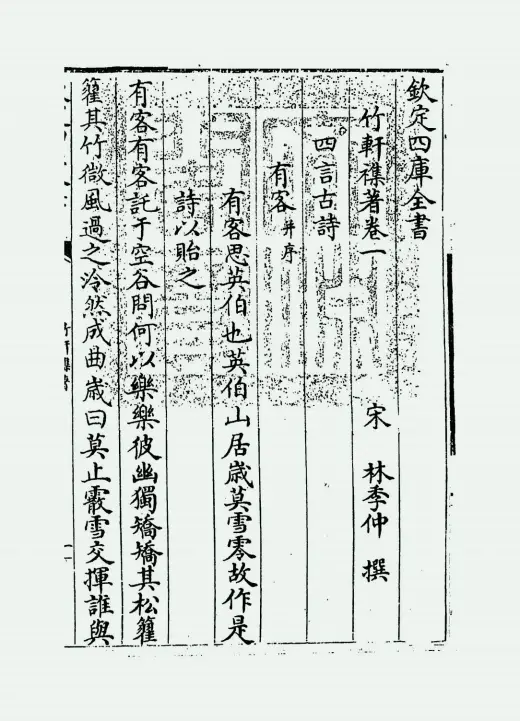 欽定四庫全書
竹軒襍著卷一
宋 林季仲 撰
四言古詩
有客并序
有客思英伯也英伯山居歲莫雪零故作是
詩以貽之
有客有客託于空谷問何以樂樂彼幽獨矯矯其松籊
籊其竹微風過之泠然成曲歲曰莫止霰雪交揮誰與